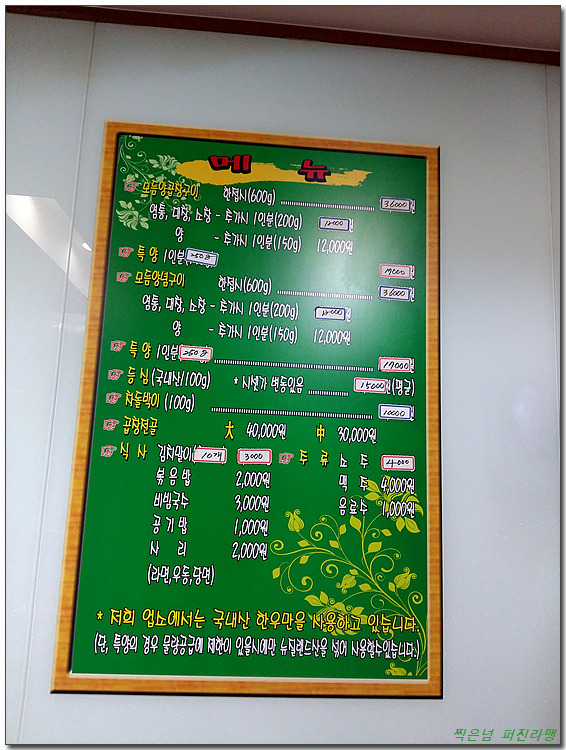 메 뉴
☞ 모듬양곱창구이 한접시(600g) 36000원
염통, 대창, 소창 - 추가시 1인분(200g) 12000원
양 - 추가시 1인분(150g) 12,000원
☞ 특 양 1인분 250g 17000
☞ 모듬양념구이 한접시(600g) 36000원
염통, 대창, 소창 - 추가시 1인분(200g) 12000원
양 - 추가시 1인분(150g) 12,000원
☞ 특 양 1인분 250g 17000
☞ 등 심 (국내산/100g) * 시셋가 변동있음 15000원(평균)
☞ 차돌박이 (100g) 10000
☞ 곱창전골 大 40,000원 中 30,000원
☞ 식 사 김치말이 10개 3000 ☞ 주 류 소 주 4000
볶 음 밥 2,000원 맥 주 4,000원
비빔국수 3,000원 음료수 1,000원
공 기 밥 1,000원
사 리 2,000원
(라면,우동,당면)
* 저희 업소에서는 국내산 한우만을 사용하고 있습니다.
(단, 특양의 경우 물량공급에 제한이 있을시에만 뉴질랜드산을 섞어 사용할수있습니다.)
찍은넘 퍼진라맹